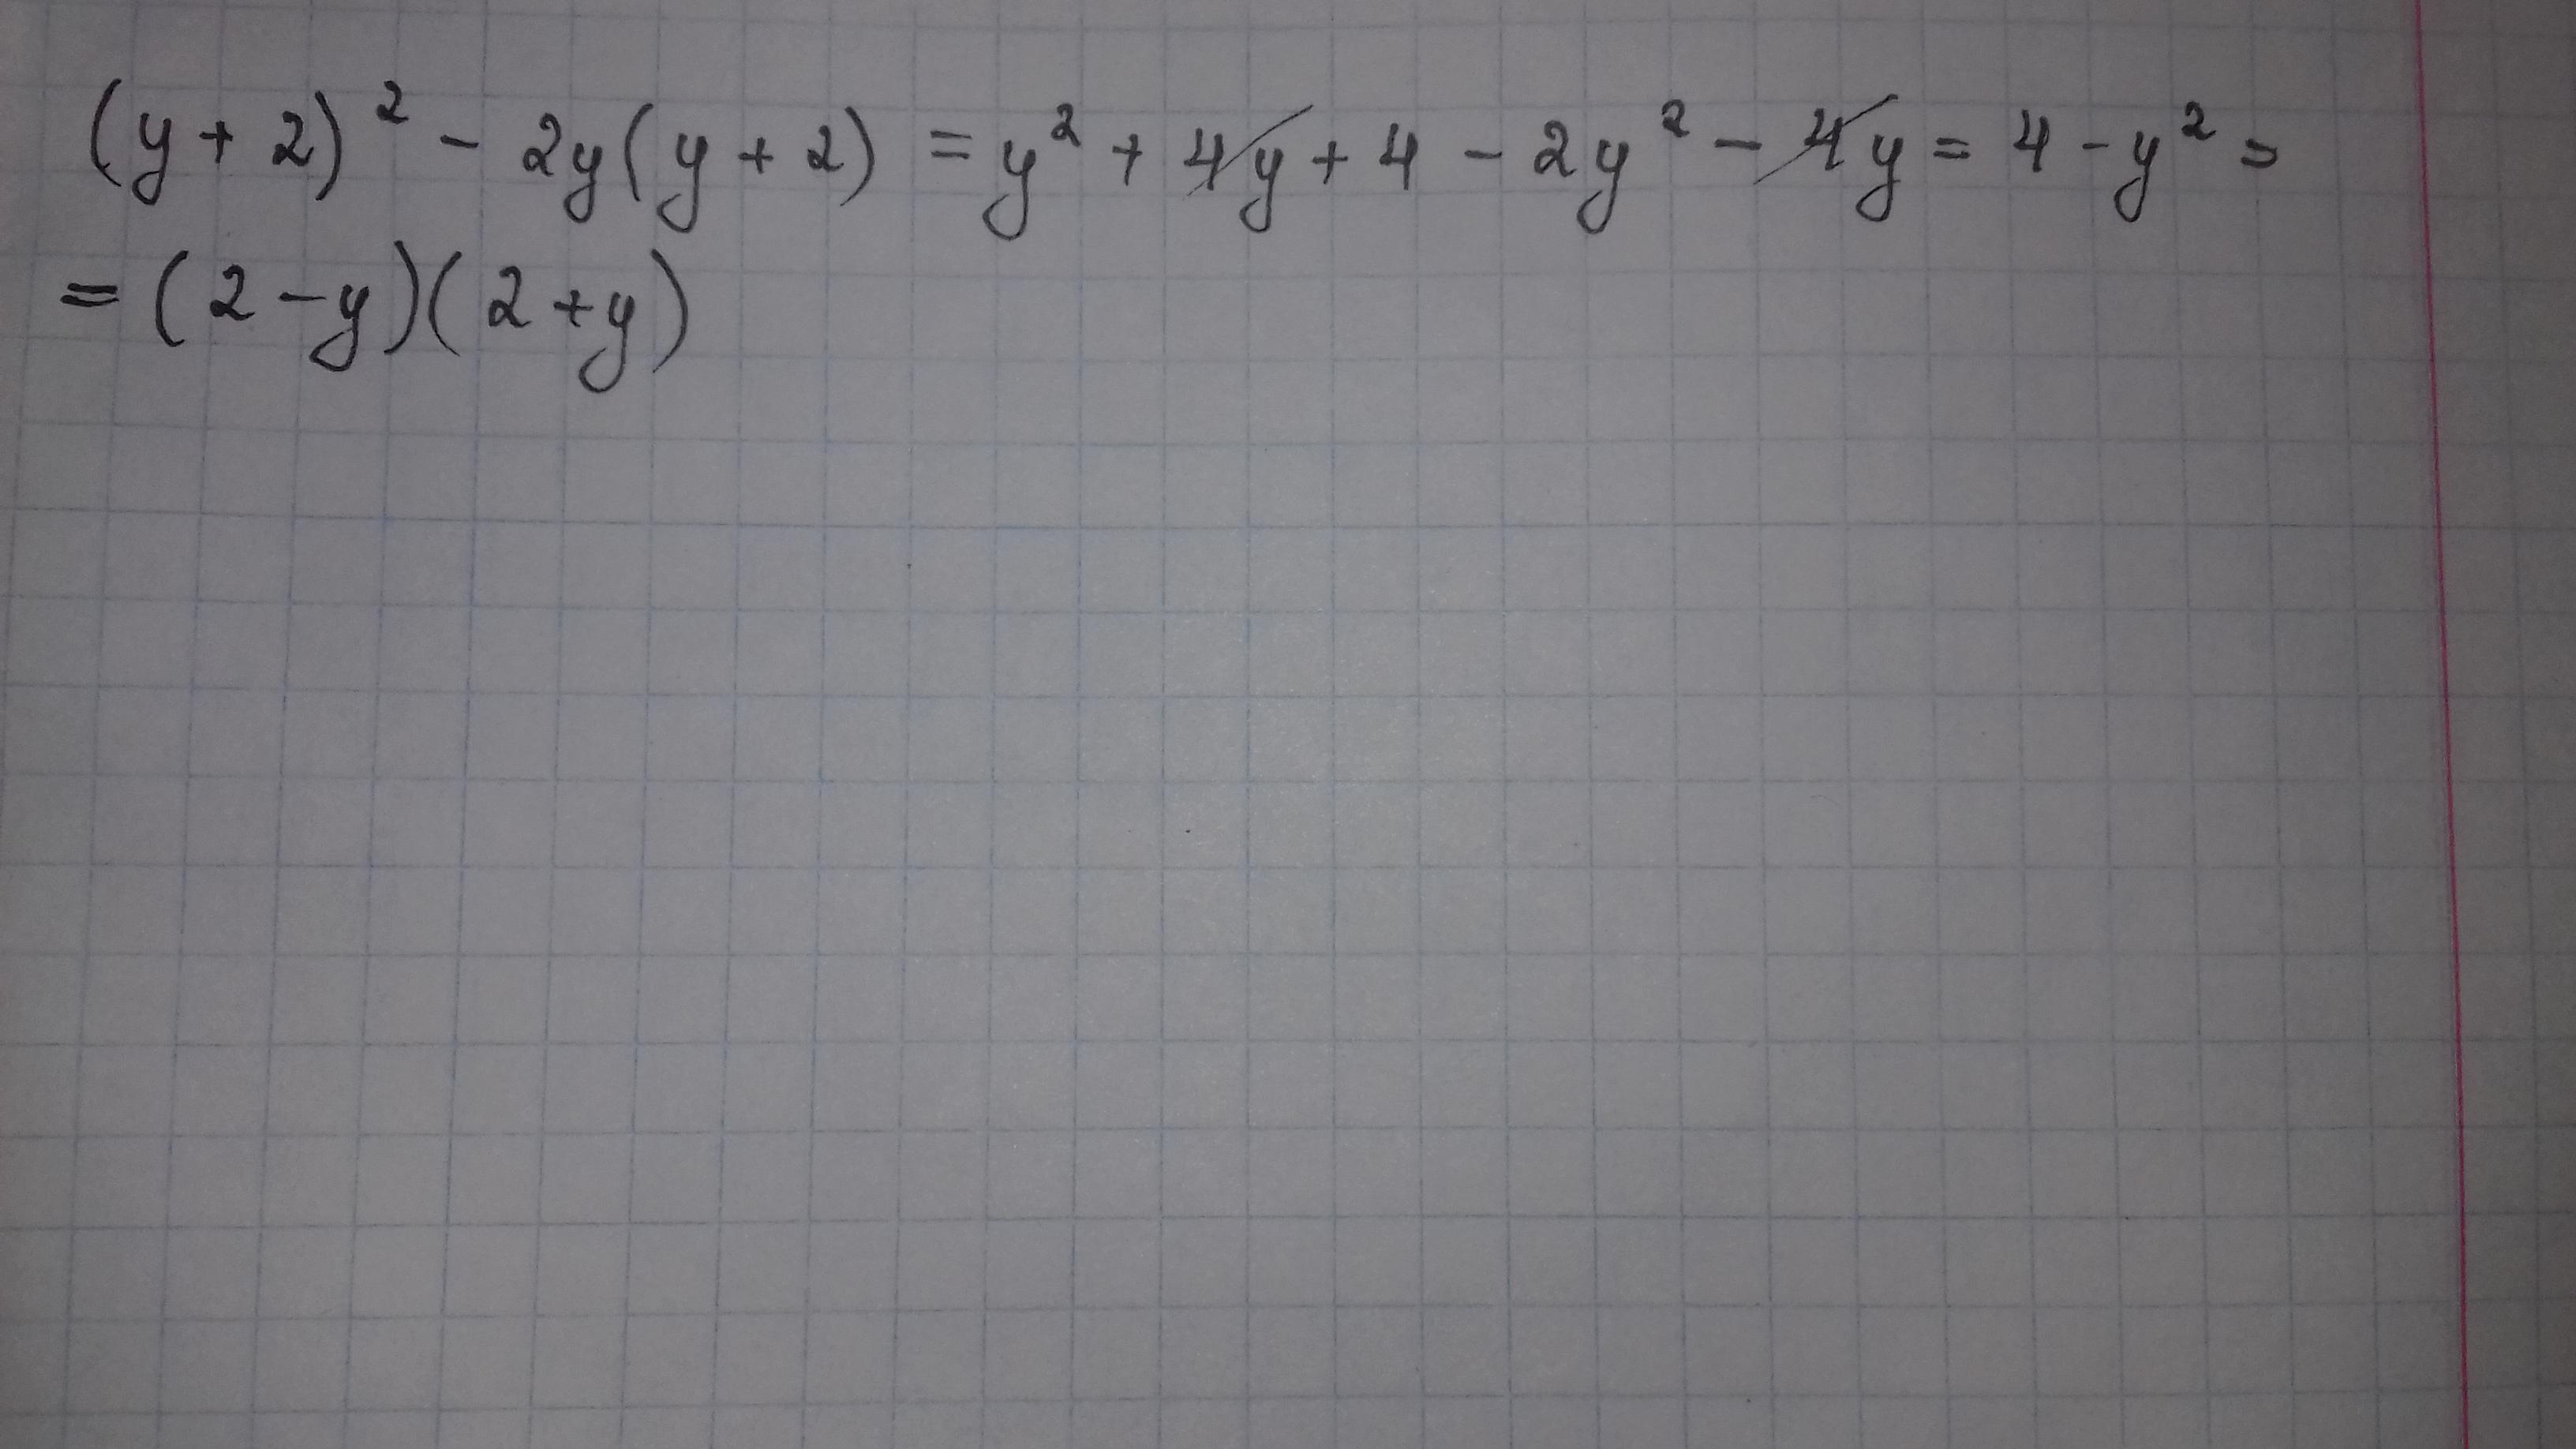 (y + 2)² - 2y(y + 2) = y² + 4y + 4 - 2y² - 4y = 4 - y² =
= (2 - y)(2 + y)